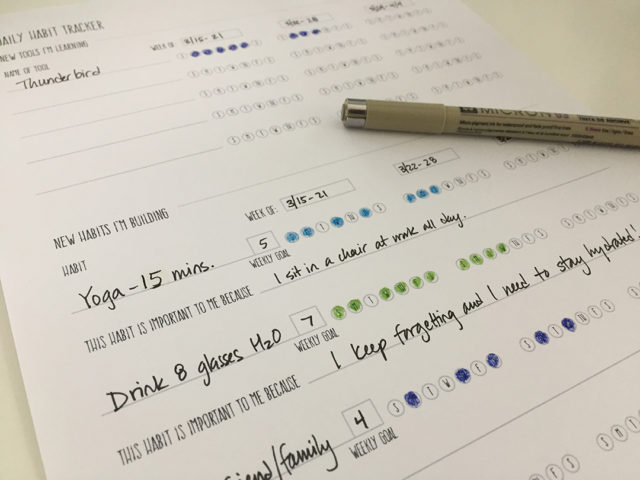 DAILY HABIT TRACKER
NEW TOOLS I'M LEARNING
WEEK OF: 3/15-21 3/22-28
NAME OF TOOL
Thunderbird
MICRON
NEW HABITS I'M BUILDING
WEEK OF: 3/15-21 3/22-28
HABIT
Yoga - 15 mins. 5
WEEKLY GOAL
THIS HABIT IS IMPORTANT TO ME BECAUSE I sit in a chair at work all day.
Drink 8 glasses H2O 7
WEEKLY GOAL
THIS HABIT IS IMPORTANT TO ME BECAUSE I keep forgetting and I need to stay hydrated!
friend/family 4
WEEKLY GOAL